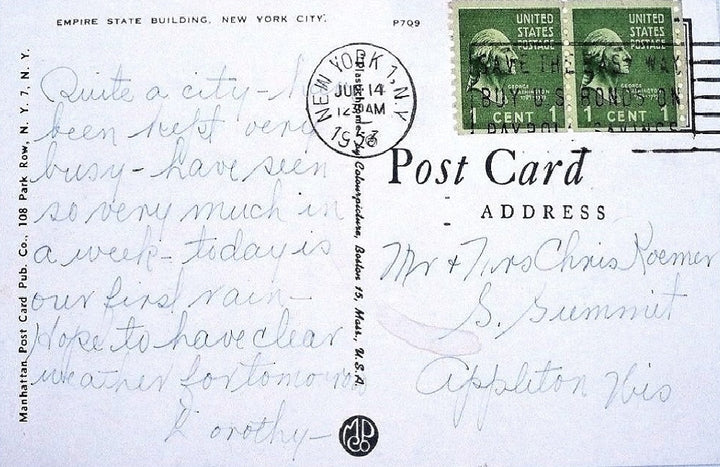 EMPIRE STATE BUILDING, NEW YORK CITY.
P709
Manhattan Post Card Pub. Co., 108 Park Row, N. Y. 7, N. Y.
Quite a city -
been kept very
busy - have seen
so very much in
a week - today is
our first rain -
Hope to have clear
weather for tomorrow
Dorothy -
Plastichrome by Colourpicture, Boston 15, Mass., U.S.A.
NEW YORK 1, N.Y.
JUN 14
1953
UNITED STATES POSTAGE
GEORGE WASHINGTON
1 CENT 1
UNITED STATES POSTAGE
GEORGE WASHINGTON
1 CENT 1
SAVE THE EASY WAY
BUY U.S. BONDS ON
PAYROLL SAVINGS
Post Card
ADDRESS
Mr + Mrs Chris Roemer
S. Summit
Appleton Wis